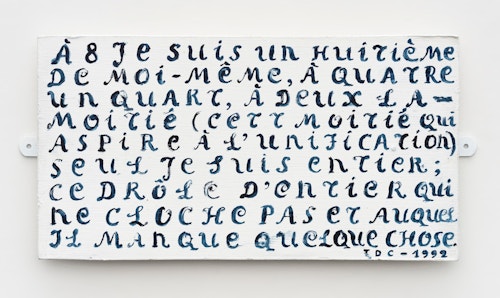 À 8 JE SUIS UN HUITIÈME
DE MOI-MÊME, À QUATRE
UN QUART, À DEUX LA-
MOITIÉ (CETT MOITIÉ QUI
ASPIRE À L'UNIFICATION)
SEUL JE SUIS ENTIER ;
CE DRÔLE D'ENTIER QUI
NE CLOCHE PAS ET AUQUEL
IL MANQUE QUELQUE CHOSE.
TDC-1992